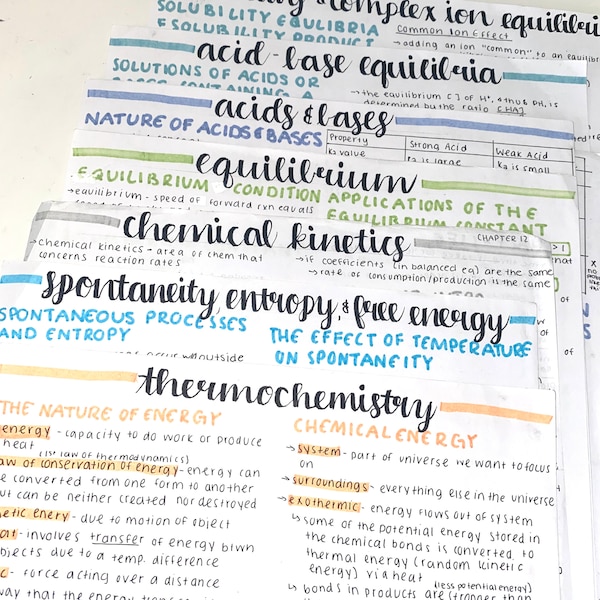 & complex ion equilibria
SOLUBILITY EQUILIBRIA
& SOLUBILITY PRODUCT
Common Ion Effect
→ adding an ion "common" to an equilibr
acid-base equilibria
SOLUTIONS OF ACIDS OR
BASES CONTAINING A
→ the equilibrium [ ] of H⁺, & thus pH, is
determined by the ratio [HA]
acids & bases
NATURE OF ACIDS & BASES
Property
Strong Acid
Weak Acid
Ka value
Ka is large
Ka is small
equilibrium
EQUILIBRIUM CONDITION
→ equilibrium - speed of forward rxn equals
APPLICATIONS OF THE
EQUILIBRIUM CONSTANT
chemical kinetics
CHAPTER 12
→ chemical kinetics - area of chem that
concerns reaction rates
→ if coefficients (in balanced eq) are the same
↳ rate of consumption/production is the same
spontaneity, entropy, & free energy
SPONTANEOUS PROCESSES
AND ENTROPY
outside
THE EFFECT OF TEMPERATURE
ON SPONTANEITY
thermochemistry
THE NATURE OF ENERGY
energy - capacity to do work or produce
heat
(1st law of thermodynamics)
aw of conservation of energy - energy can
e converted from one form to another
ut can be neither created nor destroyed
netic enery - due to motion of object
eat - involves transfer of energy btwn
bjects due to a temp. difference
- force acting over a distance
way that the energy
CHEMICAL ENERGY
→ system - part of universe we want to focus
on
→ surroundings - everything else in the universe
→ exothermic - energy flows out of system
↳ some of the potential energy stored in
the chemical bonds is converted to
thermal energy (random kinetic
energy) via heat
(less potential energy)
↳ bonds in products are stronger than